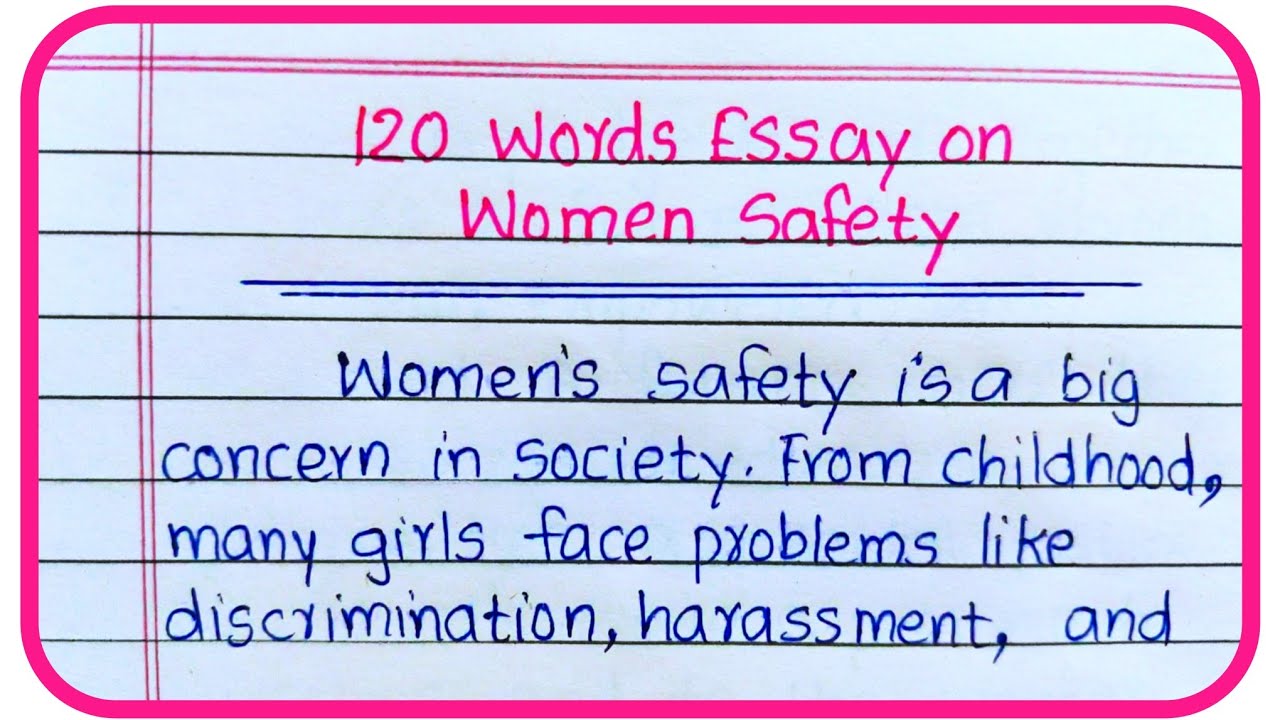 120 Words Essay on
Women Safety
Women's safety is a big
concern in society. From childhood,
many girls face problems like
discrimination, harassment, and